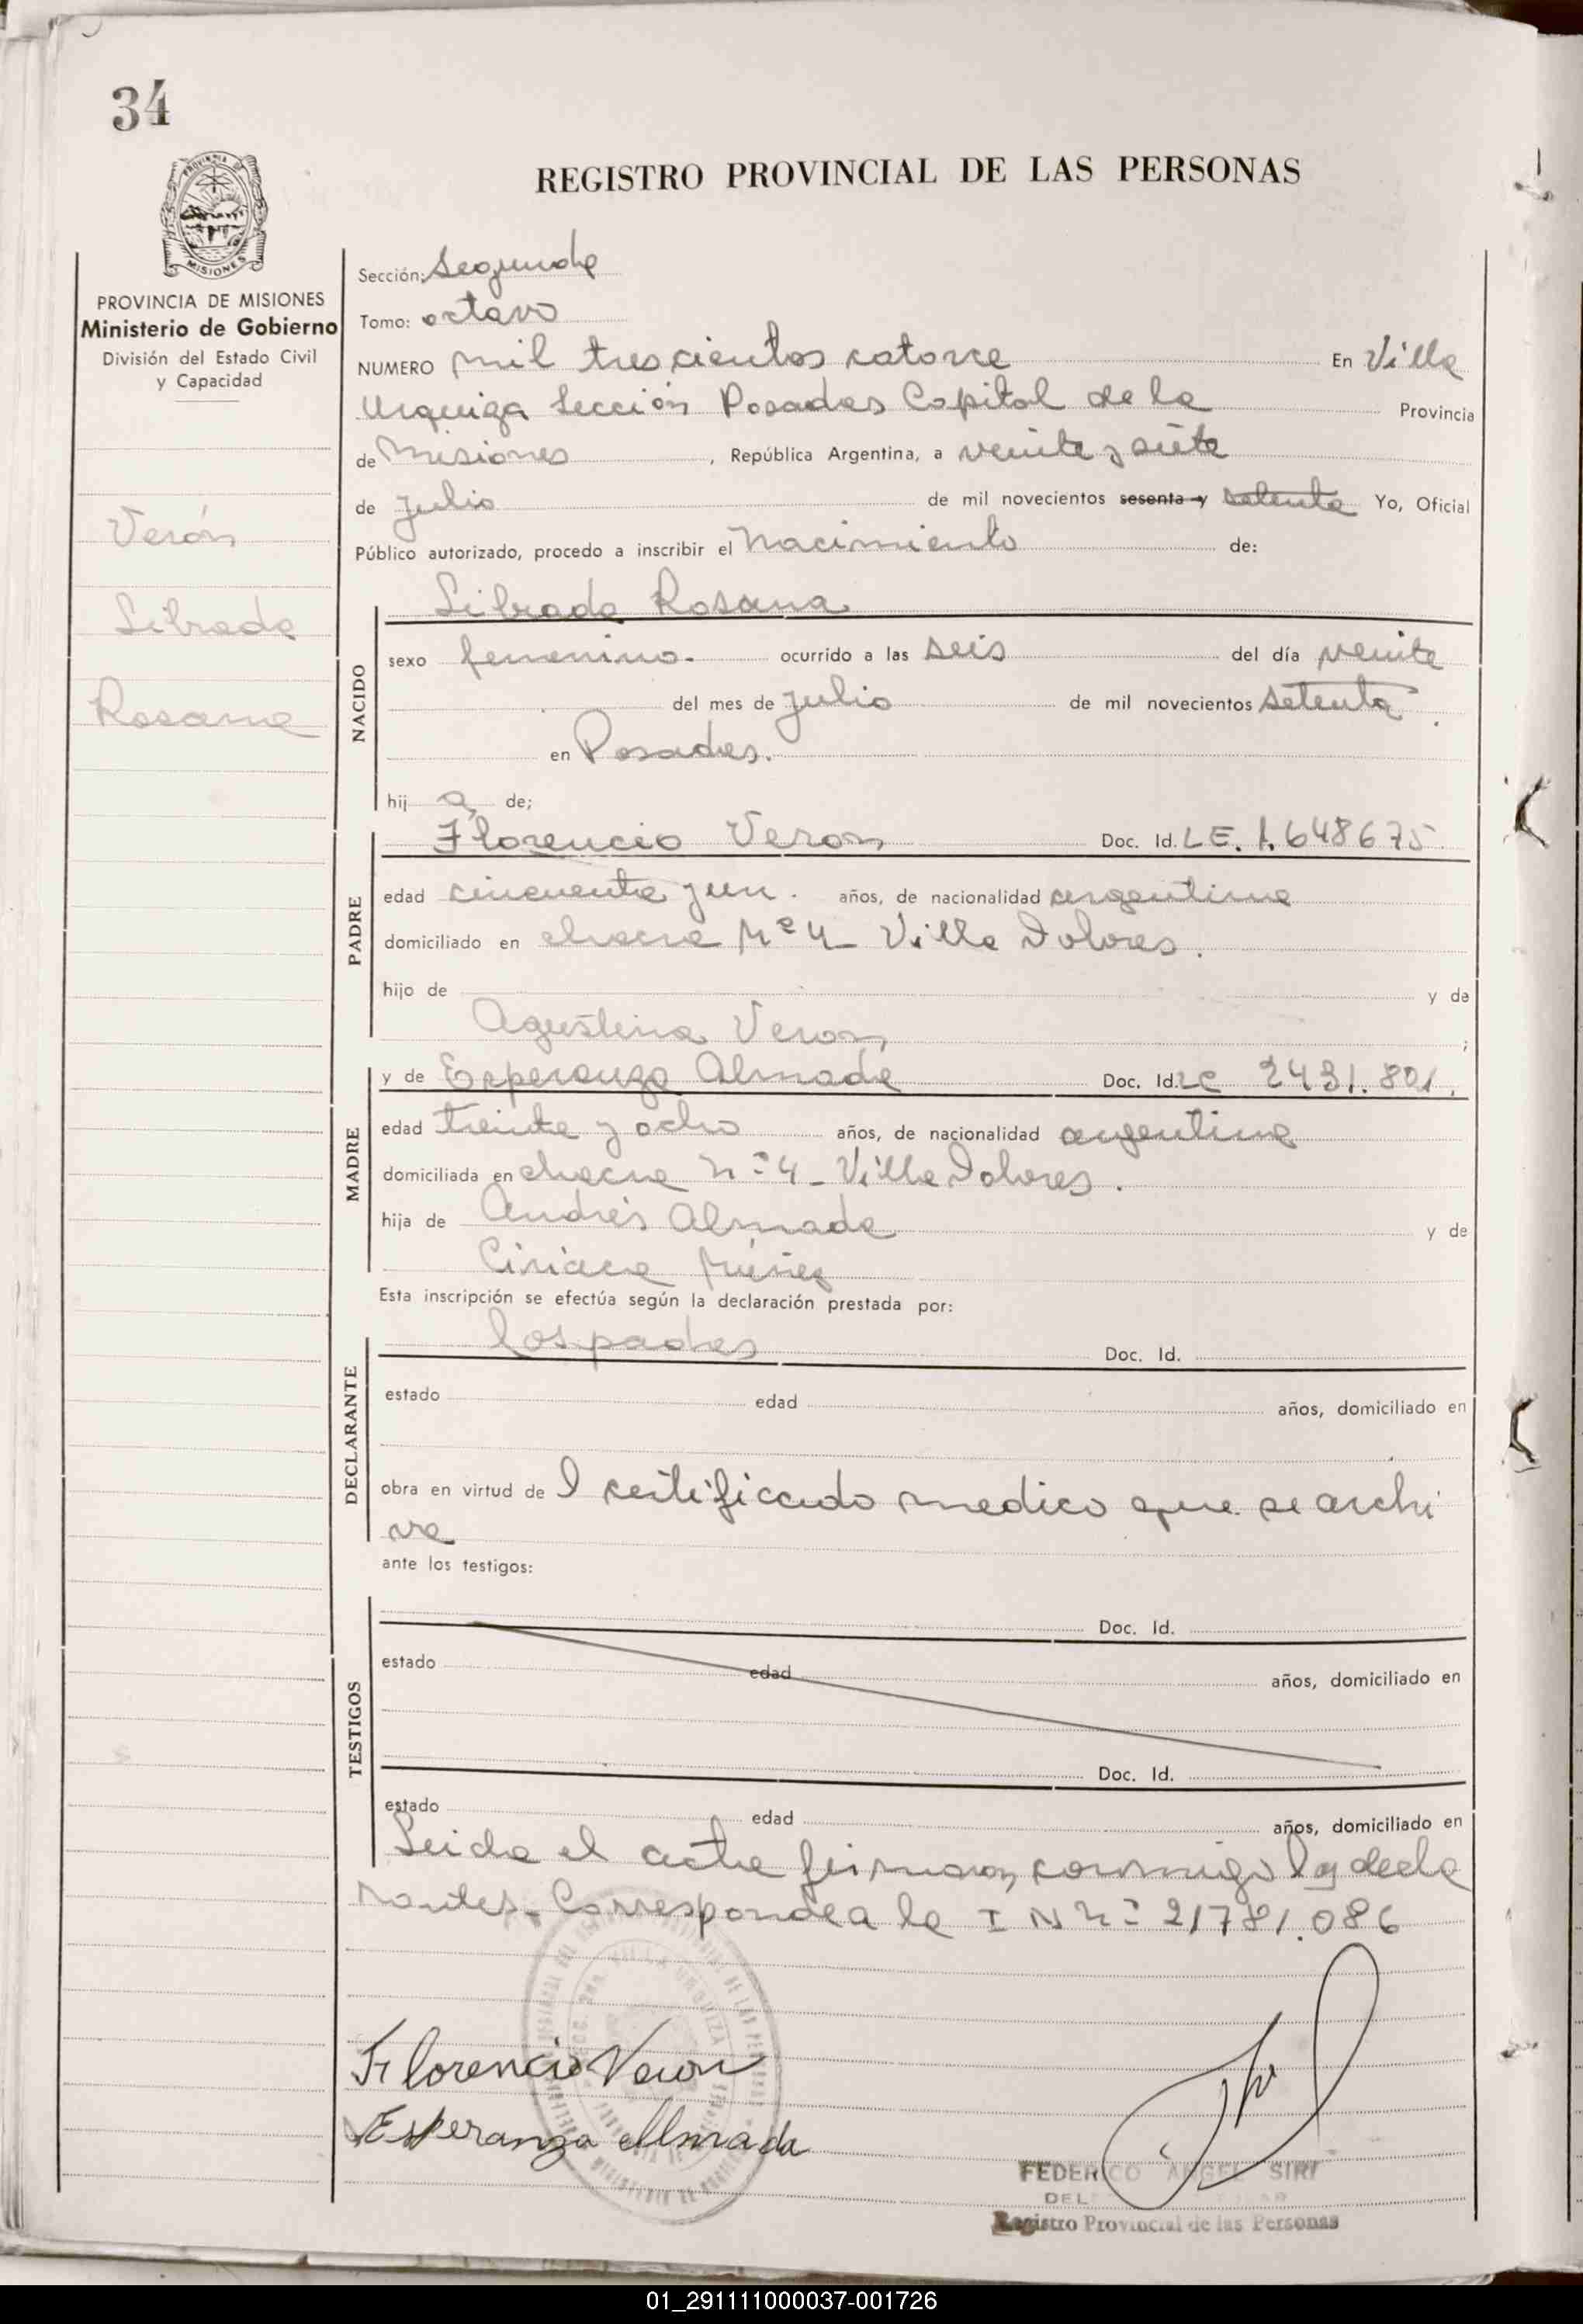 34
REGISTRO PROVINCIAL DE LAS PERSONAS
PROVINCIA DE MISIONES
MISIONES
PROVINCIA DE MISIONES
Ministerio de Gobierno
División del Estado Civil
y Capacidad
Verón
Librada
Rosana
Sección: Segunda
Tomo: octavo
NUMERO mil trescientos catorce En Villa
Urquiza Sección Posadas Capital de la Provincia
de Misiones, República Argentina, a veinte y siete
de Julio de mil novecientos sesenta y setenta Yo, Oficial
Público autorizado, procedo a inscribir el Nacimiento de:
NACIDO
Librada Rosana
sexo femenino. ocurrido a las seis del día veinte
del mes de Julio de mil novecientos setenta
en Posadas.
hij a de;
PADRE
Florencio Veron Doc. Id. LE. 1.648675
edad cincuenta y un. años, de nacionalidad argentina
domiciliado en chacra Nº 4 - Villa Dolores.
hijo de y de
Agustina Veron;
MADRE
y de Esperanza Almada Doc. Id. LC 2431.801.
edad treinta y ocho años, de nacionalidad argentina
domiciliada en chacra nº 4 - Villa Dolores.
hija de Andrés Almada y de
Ciriaca Núñez
Esta inscripción se efectúa según la declaración prestada por:
DECLARANTE
los padres Doc. Id.
estado edad años, domiciliado en
obra en virtud de l certificado medico que se archi
va
ante los testigos:
TESTIGOS
Doc. Id.
estado edad años, domiciliado en
Doc. Id.
estado edad años, domiciliado en
Leida el acta firman conmigo los decla
rantes. Corresponde a la I N nº 21781.086
Florencio Veron
Esperanza Almada
FEDERICO ANGEL SIRI
Registro Provincial de las Personas
01_291111000037-001726